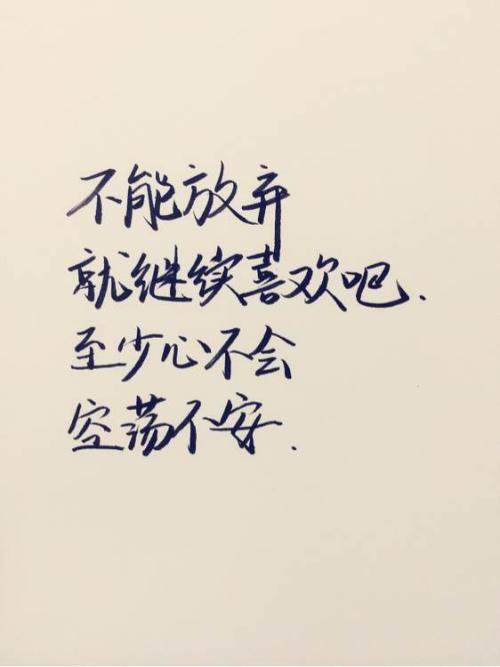 不能放弃
就继续喜欢吧.
至少心不会
空荡不安.